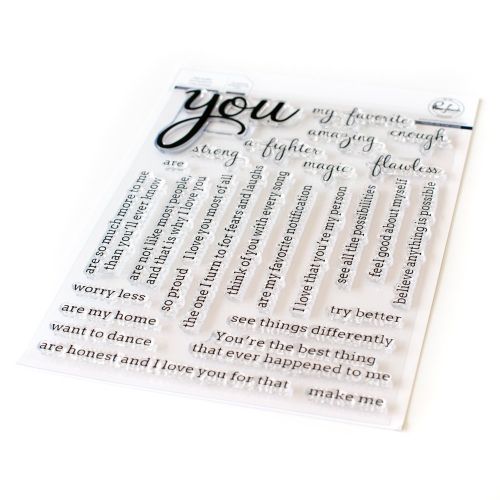 you
my favorite
amazing
enough
a fighter
strong
magic
flawless
are
are so much more to me
than you'll ever know
are not like most people,
and that is why I love you
so proud
I love you most of all
the one I turn to for fears and laughs
think of you with every song
are my favorite notification
I love that you're my person
see all the possibilities
feel good about myself
believe anything is possible
worry less
are my home
want to dance
are honest and I love you for that
try better
see things differently
You're the best thing
that ever happened to me
make me